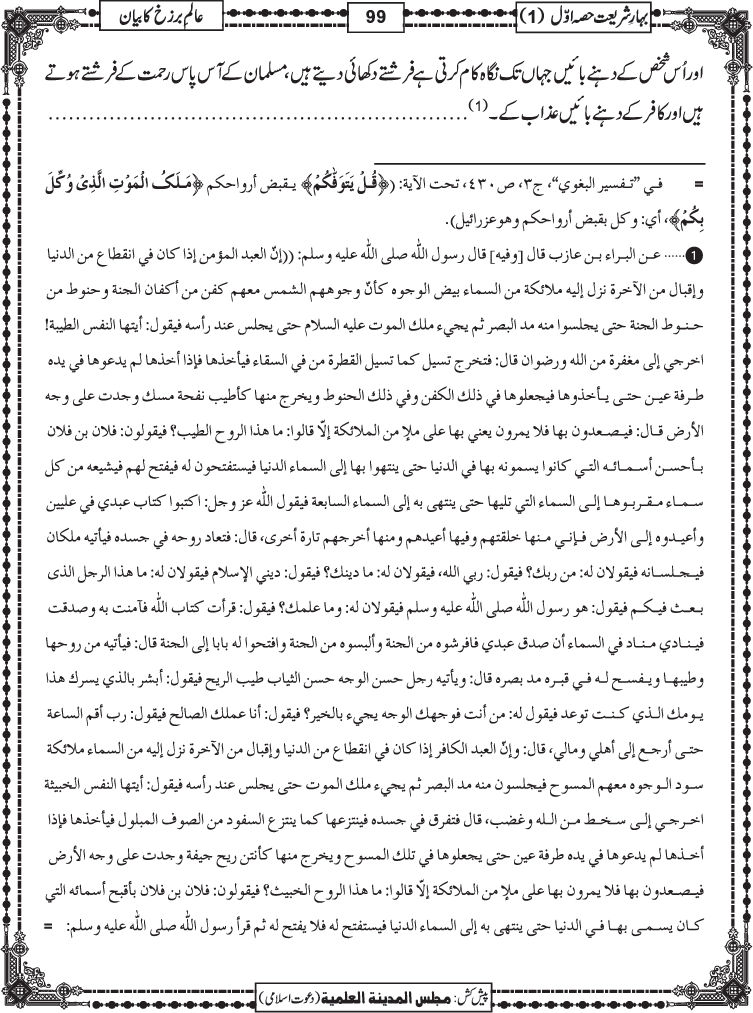 بہارِ شریعت حصہ اوّل (1)
99
عالمِ برزخ کا بیان
اور اُس شخص کے دہنے بائیں جہاں تک نگاہ کام کرتی ہے فرشتے دکھائی دیتے ہیں، مسلمان کے آس پاس رحمت کے فرشتے ہوتے
ہیں اور کافر کے دہنے بائیں عذاب کے۔(1)..............................................................
= في ”تفسير البغوي“، ج٣، ص ٤٣٠، تحت الآية: (﴿قُلْ يَتَوَفّٰكُمْ﴾ يقبض أرواحكم ﴿مَلَكُ الْمَوْتِ الَّذِىْ وُكِّلَ
بِكُمْ﴾، أي: وكل بقبض أرواحكم وهو عزرائيل).
1...... عن البراء بن عازب قال [وفيه] قال رسول اللّٰه صلى اللّٰه عليه وسلم: ((إنّ العبد المؤمن إذا كان في انقطاع من الدنيا
وإقبال من الآخرة نزل إليه ملائكة من السماء بيض الوجوه كأنّ وجوههم الشمس معهم كفن من أكفان الجنة وحنوط من
حنوط الجنة حتى يجلسوا منه مد البصر ثم يجيء ملك الموت عليه السلام حتى يجلس عند رأسه فيقول: أيتها النفس الطيبة!
اخرجي إلى مغفرة من الله ورضوان قال: فتخرج تسيل كما تسيل القطرة من في السقاء فيأخذها فإذا أخذها لم يدعوها في يده
طرفة عين حتى يأخذوها فيجعلوها في ذلك الكفن وفي ذلك الحنوط ويخرج منها كأطيب نفحة مسك وجدت على وجه
الأرض قال: فيصعدون بها فلا يمرون يعني بها على ملإ من الملائكة إلّا قالوا: ما هذا الروح الطيب؟ فيقولون: فلان بن فلان
بأحسن أسمائه التي كانوا يسمونه بها في الدنيا حتى ينتهوا بها إلى السماء الدنيا فيستفتحون له فيفتح لهم فيشيعه من كل
سماء مقربوها إلى السماء التي تليها حتى ينتهى به إلى السماء السابعة فيقول اللّٰه عز وجل: اكتبوا كتاب عبدي في عليين
وأعيدوه إلى الأرض فإني منها خلقتهم وفيها أعيدهم ومنها أخرجهم تارة أخرى، قال: فتعاد روحه في جسده فيأتيه ملكان
فيجلسانه فيقولان له: من ربك؟ فيقول: ربي الله، فيقولان له: ما دينك؟ فيقول: ديني الإسلام فيقولان له: ما هذا الرجل الذى
بعث فيكم فيقول: هو رسول اللّٰه صلى اللّٰه عليه وسلم فيقولان له: وما علمك؟ فيقول: قرأت كتاب اللّٰه فآمنت به وصدقت
فينادي مناد في السماء أن صدق عبدي فافرشوه من الجنة وألبسوه من الجنة وافتحوا له بابا إلى الجنة قال: فيأتيه من روحها
وطيبها ويفسح له في قبره مد بصره قال: ويأتيه رجل حسن الوجه حسن الثياب طيب الريح فيقول: أبشر بالذي يسرك هذا
يومك الذي كنت توعد فيقول له: من أنت فوجهك الوجه يجيء بالخير؟ فيقول: أنا عملك الصالح فيقول: رب أقم الساعة
حتى أرجع إلى أهلي ومالي، قال: وإنّ العبد الكافر إذا كان في انقطاع من الدنيا وإقبال من الآخرة نزل إليه من السماء ملائكة
سود الوجوه معهم المسوح فيجلسون منه مد البصر ثم يجيء ملك الموت حتى يجلس عند رأسه فيقول: أيتها النفس الخبيثة
اخرجي إلى سخط من الله وغضب، قال فتفرق في جسده فينتزعها كما ينتزع السفود من الصوف المبلول فيأخذها فإذا
أخذها لم يدعوها في يده طرفة عين حتى يجعلوها في تلك المسوح ويخرج منها كأنتن ريح جيفة وجدت على وجه الأرض
فيصعدون بها فلا يمرون بها على ملإ من الملائكة إلّا قالوا: ما هذا الروح الخبيث؟ فيقولون: فلان بن فلان بأقبح أسمائه التي
كان يسمى بها في الدنيا حتى ينتهى به إلى السماء الدنيا فيستفتح له فلا يفتح له ثم قرأ رسول اللّٰه صلى اللّٰه عليه وسلم: =
پیش کش: مجلس المدينة العلمية (دعوت اسلامی)